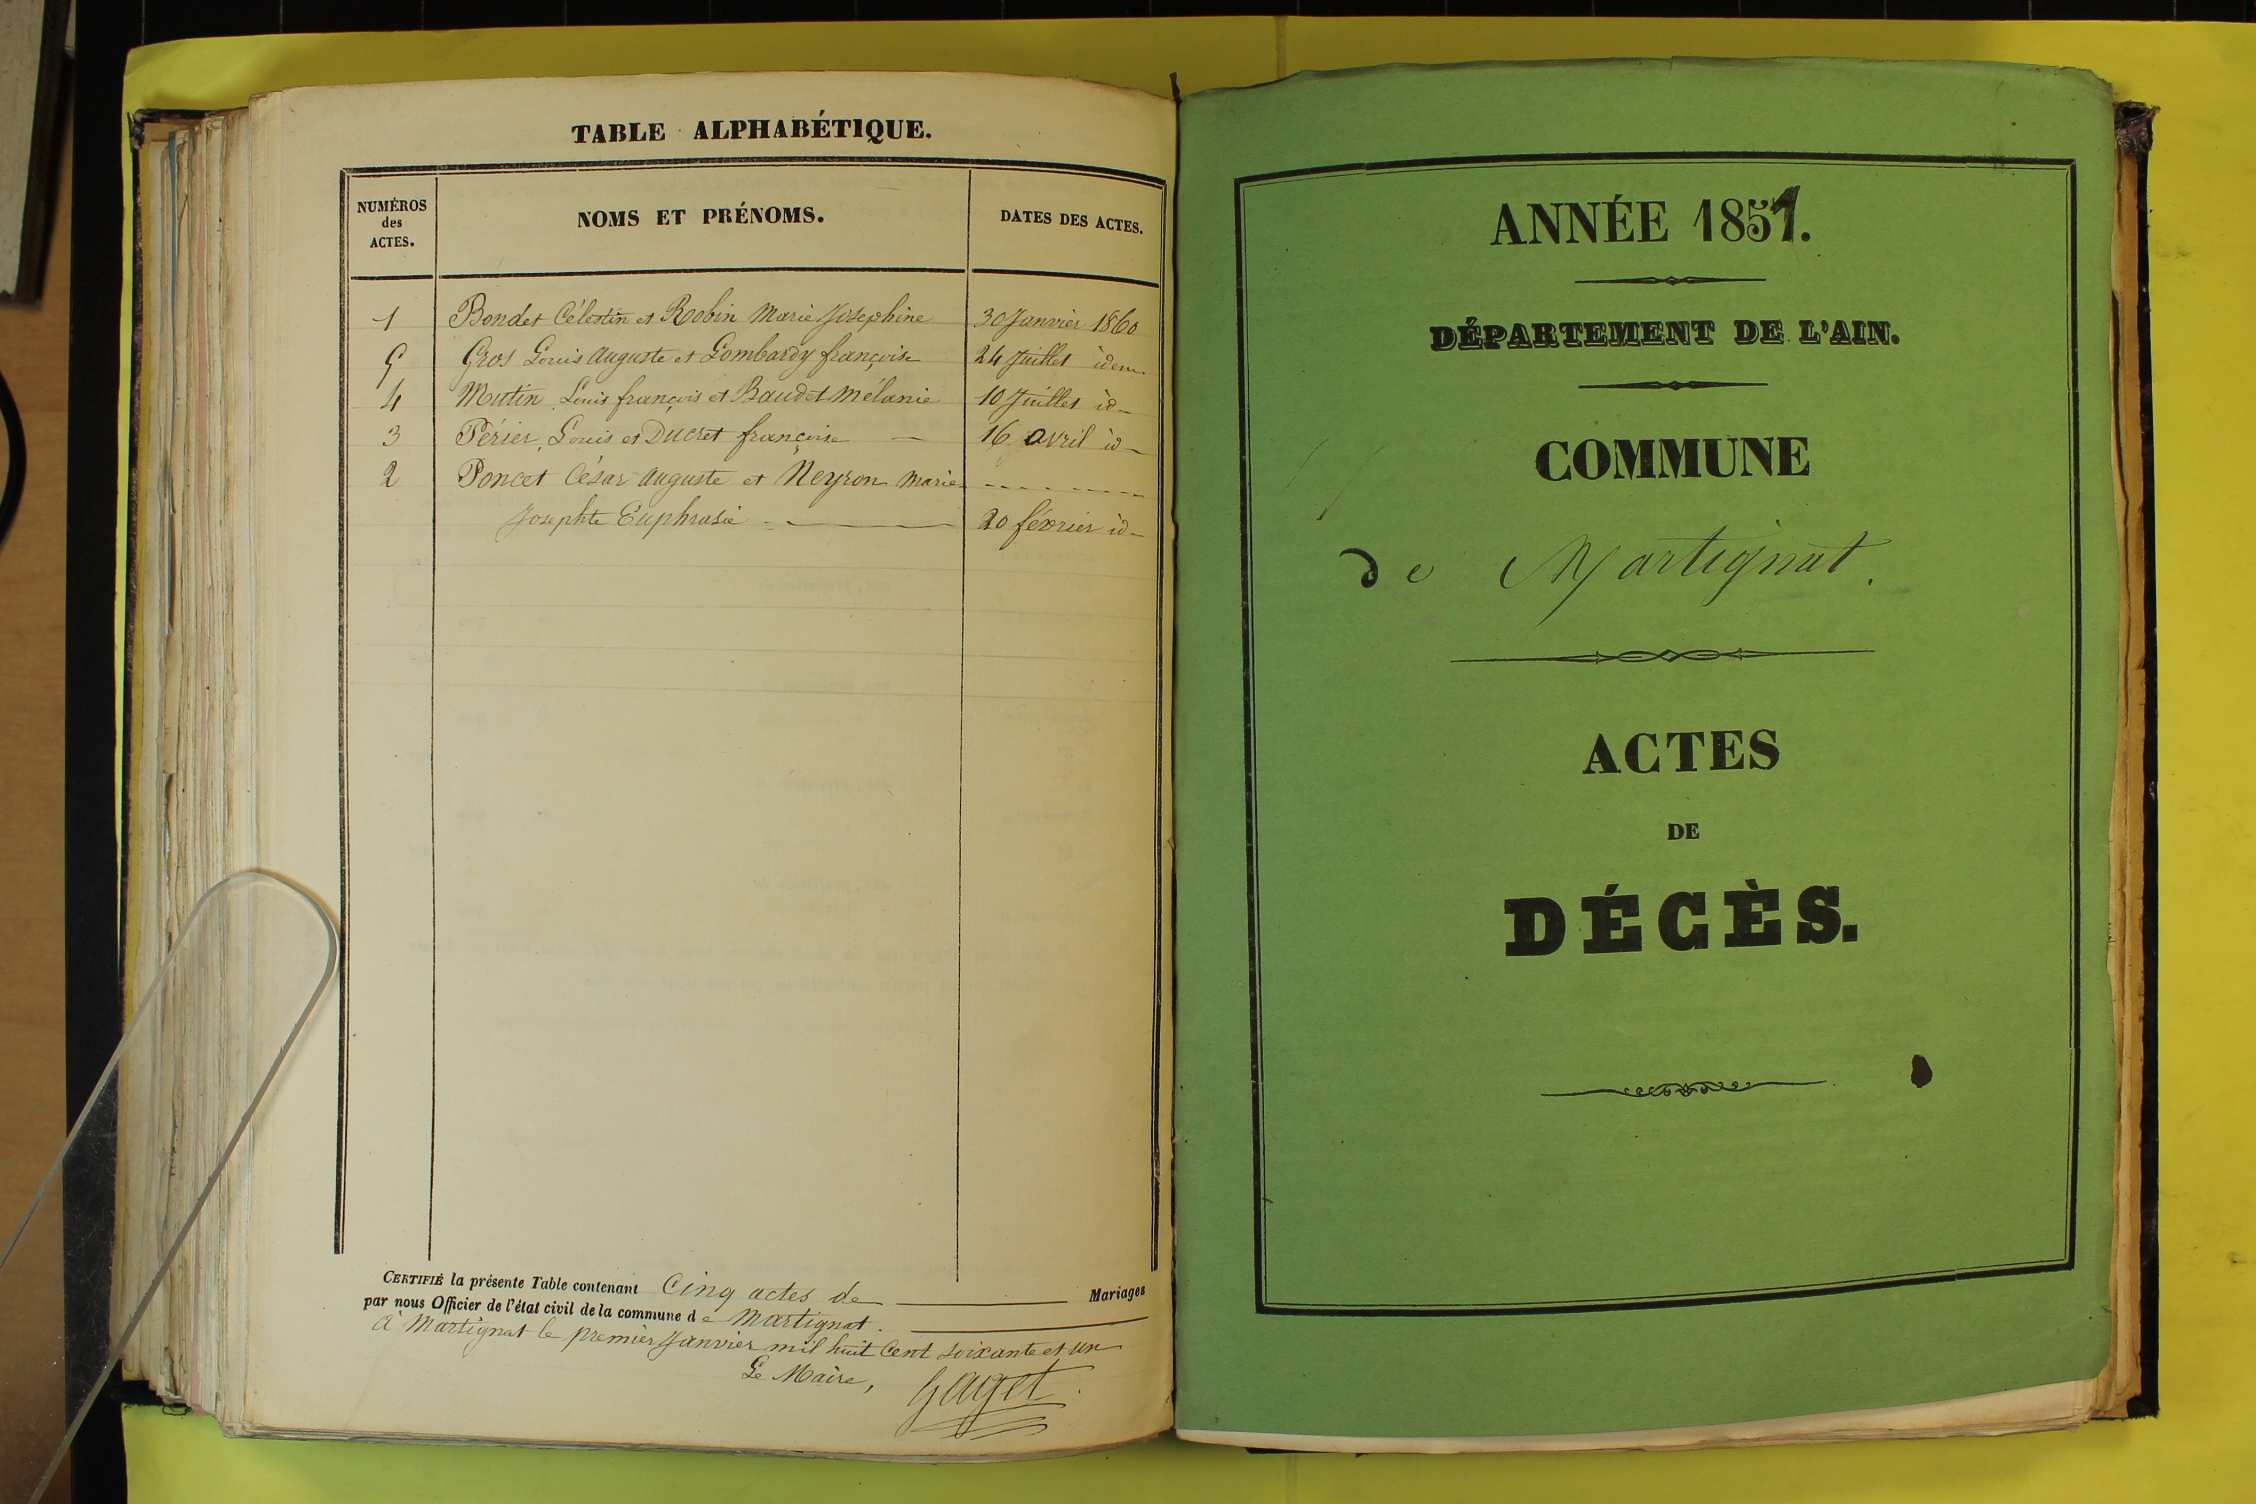 TABLE ALPHABÉTIQUE.
NUMÉROS
des
ACTES.
NOMS ET PRÉNOMS.
DATES DES ACTES.
1 Bondet Célestin et Robin Marie Josephine 30 Janvier 1860
5 Gros Louis Auguste et Lombardy françoise 24 Juillet idem
4 Mutin Louis françois et Baudet Mélanie 10 Juillet id
3 Périer, Louis et Ducret françoise 16 avril id
2 Poncet César Auguste et Neyron Marie
Josephte Euphrasie 20 février id
CERTIFIÉ la présente Table contenant Cinq actes de Mariages
par nous Officier de l'état civil de la commune de Martignat.
A Martignat le premier Janvier mil huit Cent soixante et un
Le Maire, Gaget
ANNÉE 1851.
DÉPARTEMENT DE L'AIN.
COMMUNE
de Martignat.
ACTES
DE
DÉCÈS.